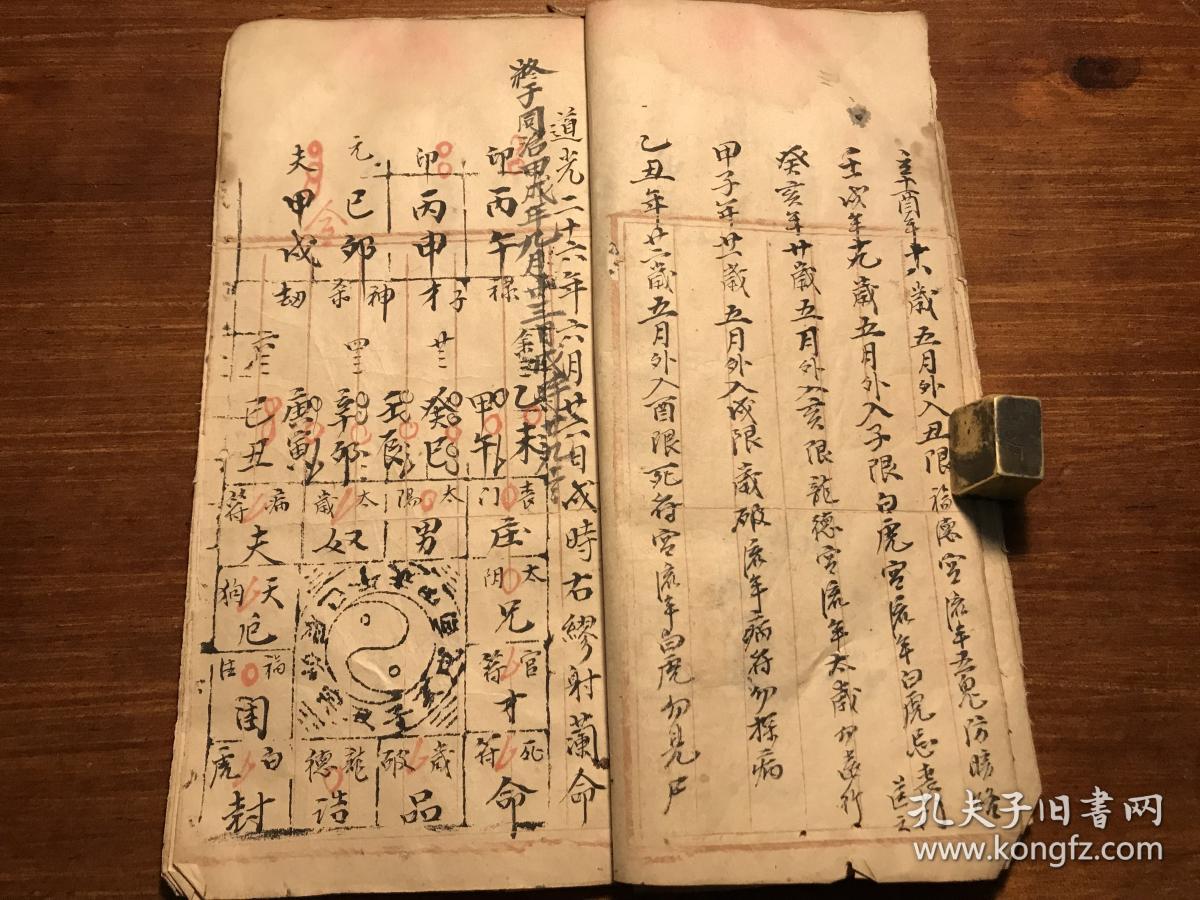 辛酉年十八歲五月外入丑限福德宮流年五鬼防
壬戌年十九歲五月外入子限白虎宮流年白虎忌
癸亥年廿歲五月外入亥限龍德宮流年太歲勿遠行
甲子年廿一歲五月外入戌限歲破流年病符勿探病
乙丑年廿二歲五月外入酉限死符宮流年白虎勿見尸
道光二十六年六月廿六日戌時右繆射蘭命
終于同治甲戌年九月廿三日
卯 卯 元 夫
丙午 丙申 己卯 甲戌
祿 子才 神杀 劫
乙未 甲午 癸巳 壬辰 辛卯 庚寅 己丑
喪門 太陽 太歲 病符
庄 男 奴 夫
太阴 天狗
兄 厄
官符 福德
才 困
死符 歲破 龍德 白虎
命 品 诰 封
孔夫子旧书网
www.kongfz.com